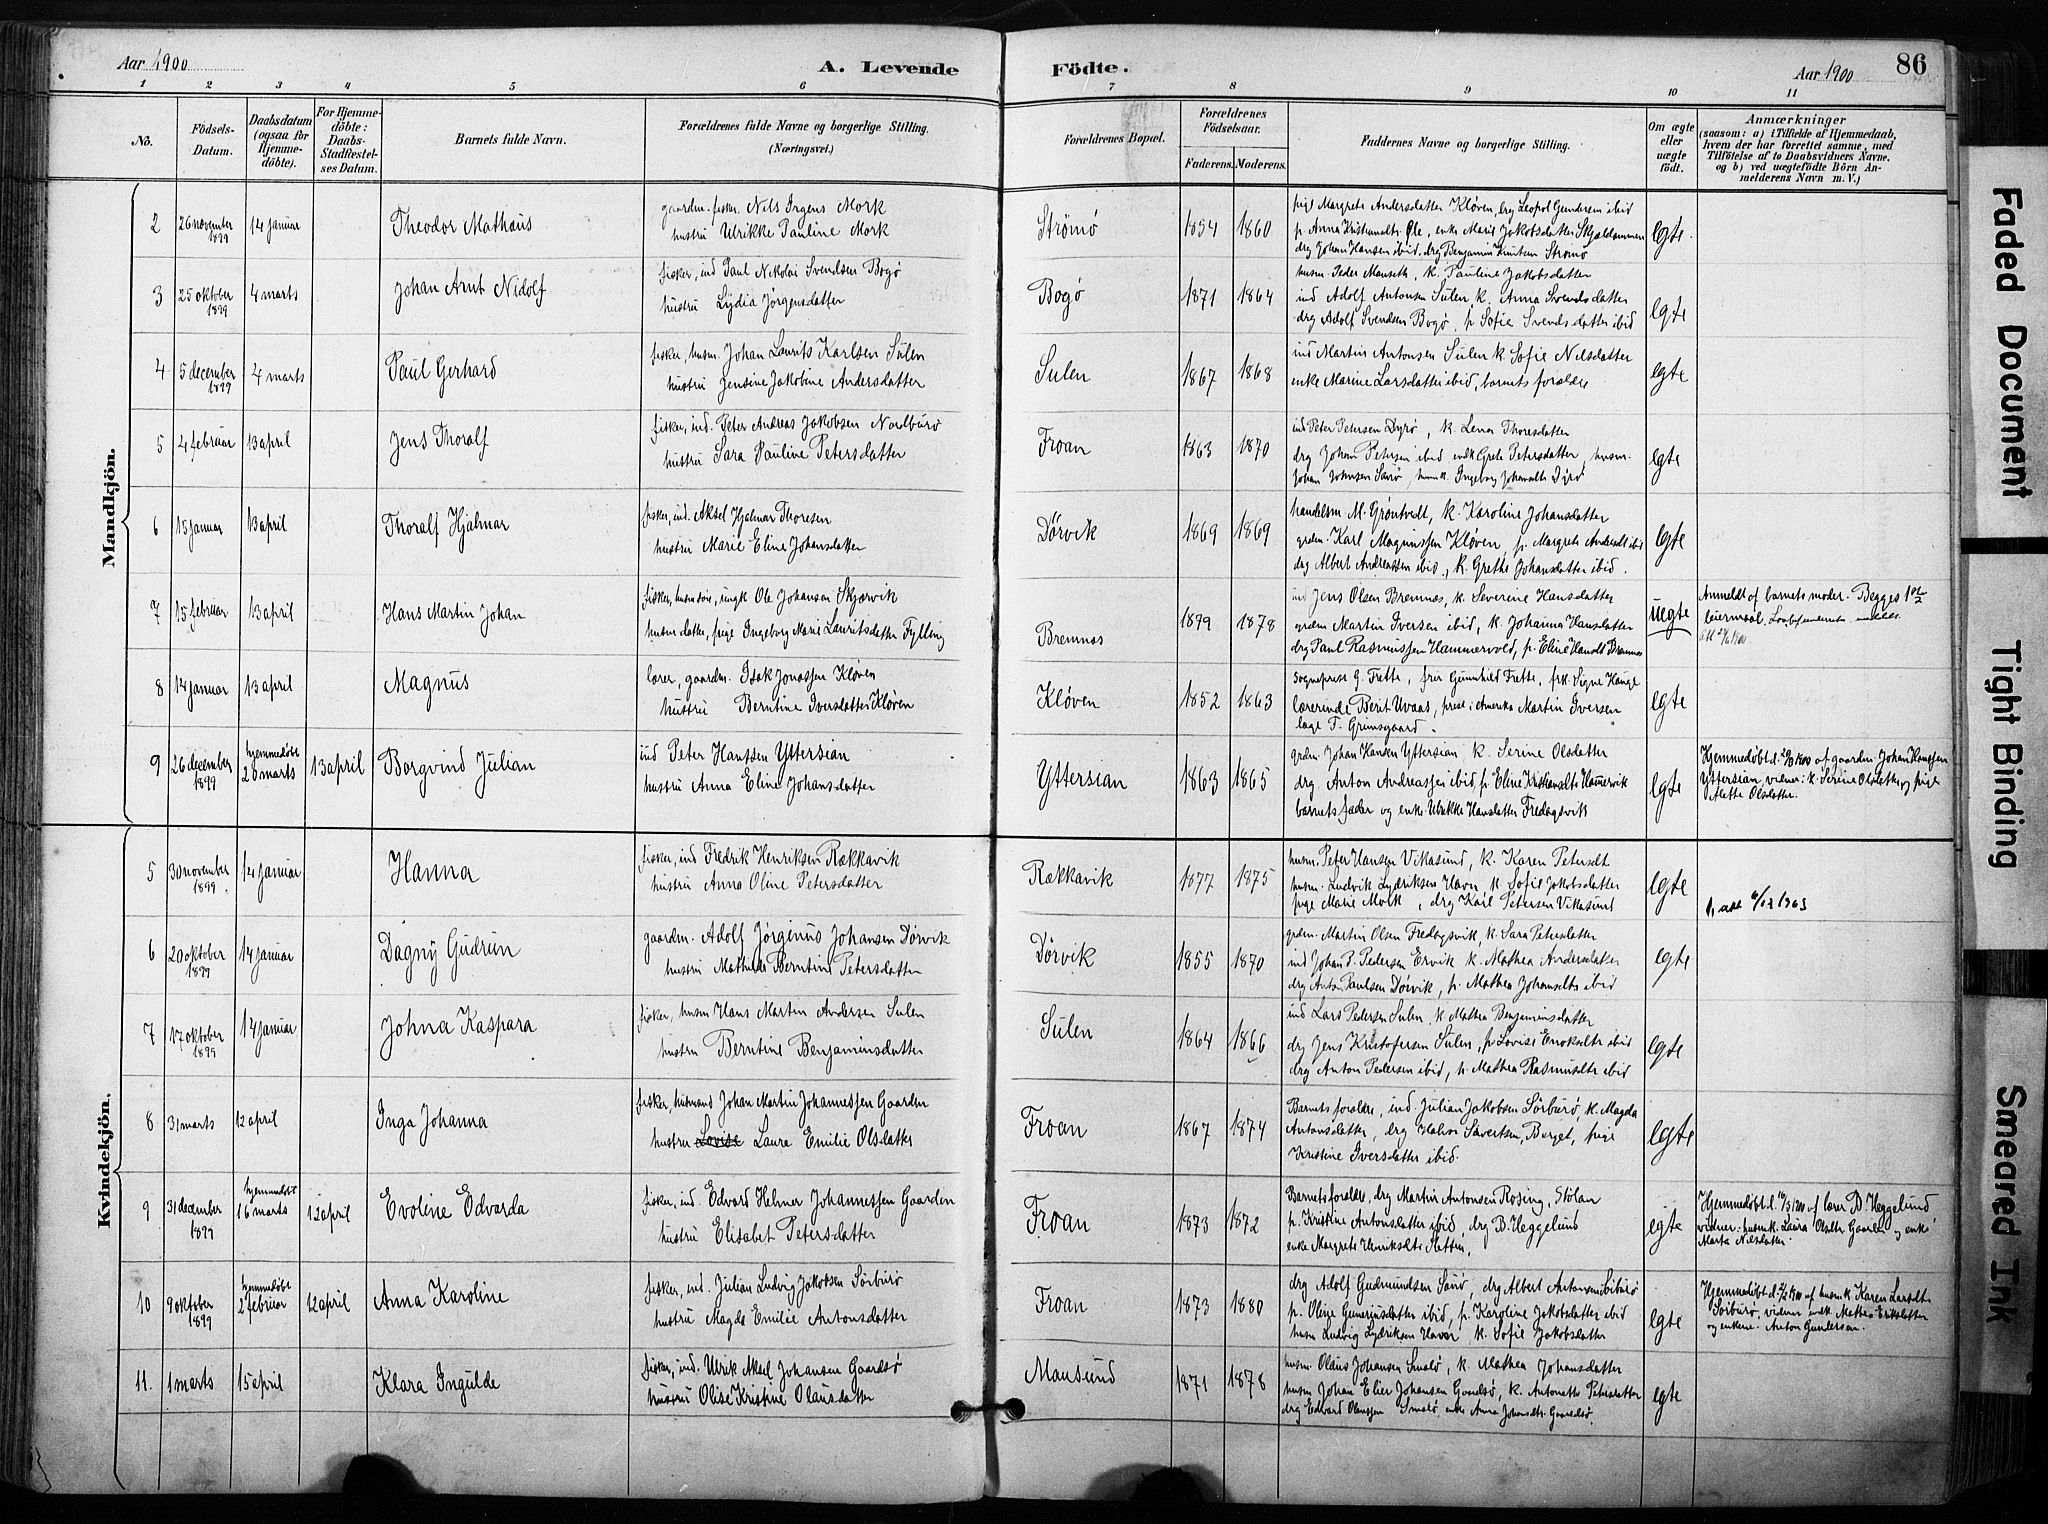 Aar 1900
A. Levende
Födte.
Aar 1900
86
1 2 3 4 5 6 7 8 9 10 11
No.
Födsels-Datum.
Daabsdatum (ogsaa for Hjemme-döbte).
For Hjemme-döbte: Daabs-Stadfæstel-ses Datum.
Barnets fulde Navn.
Forældrenes fulde Navne og borgerlige Stilling.
(Næringsvei.)
Forældrenes Bopæl.
Forældrenes Födselsaar.
Faderens. Moderens.
Faddernes Navne og borgerlige Stilling.
Om ægte eller uægte födt.
Anmærkninger
(saasom: a) i Tilfælde af Hjemmedaab,
hvem der har forrettet samme, med
Tilföielse af to Daabsvidners Navne.
og b) ved uægtefödte Börn An-
melderens Navn m. V.)
Mandkjön.
2 26 november 1899 14 januar Theodor Mathäus
gaardm. fisker. Nils Irgens Mork
hustru Ulrikke Pauline Mork
Strømø 1854 1860
pige Margrete Andersdatter Kløven, drg Leopol Gundersen ibid
p. Anna Kristiansdtr. Øle, enke Marie Jakobsdatter Skjældammen
drg Johan Hansen ibid, drg Benjamin Knutsen Strømø
egte
3 25 oktober 1899 4 marts Johan Arnt Nidolf
fisker, ind Paul Nikolai Svendsen Bogø
hustru Lydia Jørgensdatter
Bogø 1871 1864
husm. Peder Mauseth, k. Pauline Jakobsdatter
ind Adolf Antonsen Sulen, k. Anna Svendsdatter
drg Adolf Svendsen Bogø, p Sofie Svendsdatter ibid
egte
4 5 december 1899 4 marts Paul Gerhard
fisker, husm. Johan Laurits Karlsen Sulen
hustru Jensine Jakobine Andersdatter
Sulen 1867 1868
ind Martin Antonsen Sulen k. Sofie Nilsdatter
enke Marine Larsdatter ibid, barnets forældre
egte
5 4 februar 13 april Jens Thoralf
fisker, ind. Peter Andreas Jakobsen Nordburø
hustru Sara Pauline Petersdatter
Froan 1863 1870
ind Peter Petersen Dyrø, k. Lena Thoresdatter
drg Johan Petersen ibid enk Grete Petersdatter, husm.
Johan Johnsen Saurø, husm k. Ingeborg Johansdtr Dyrø
egte
6 15 januar 13 april Thoralf Hjalmar
fisker, ind. Aksel Hjalmar Thoresen
hustru Marie Eline Johansdatter
Dørvik 1869 1869
handelsm. M. Grøntvedt, k. Karoline Johansdatter
grdm. Karl Magnussen Kløven, p. Margrete Andersdt ibid
drg Albert Andreassen ibid, k. Grethe Johansdatter ibid.
egte
7 15 februar 13 april Hans Martin Johan
fisker, husm søn, ungk Ole Johansen Skjærvik
husm datter, pige Ingeborg Marie Lauritsdatter Fylling
Bremnes 1899 1878
ind Jens Olsen Bremnes, k. Severine Hansdatter
grdm Martin Iversen ibid, k. Johanna Hansdatter
drg Paul Rasmussen Hammervold, p. Eline Hansdt Bremnes
uegte
Anmeldt af barnets moder. Begges 1ste
leiermaal.
8 14 januar 13 april Magnus
lærer, gaardm. Isak Jonassen Kløven
hustru Berntine Iversdatter Kløven
Kløven 1852 1863
Sognepræst G. Frette, frue Gunnhild Frette, frk. Signe Hauge
lærerinde Berit Uvaas, præst i Amerika Martin Iversen
læge F. Grimsgaard.
egte
9 26 december 1899 hjemmedøbt 20 marts 13 april Borgvind Julian
ind Peter Hanssen Yttersian
hustru Anna Eline Johansdatter
Yttersian 1863 1865
grdm. Johan Hansen Yttersian k. Serine Olsdatter
drg Anton Andreassen ibid, p. Eline Kristiansdtr Hamervik
barnets fader og enke Ulrikke Hansdatter Fredagsvik
egte
Hjemmedøbt d. 20/3 1900 af gaardm. Johan Hanssen
Yttersian, vidner: k. Serine Olsdatter og pige
Alette Olsdatter.
Kvindekjön.
5 30 november 1899. 14 januar Hanna
fisker, ind Fredrik Henriksen Rækkavik
hustru Anna Oline Petersdatter
Rækkavik 1877 1875
husm. Peter Hansen Vikasund, k. Karen Petersdt
husm. Ludvik Lydriksen Havn, k. Sofie Jakobsdatter
pige Marie Mork, drg Karl Petersen Vikasund
egte
6 20 oktober 1899 14 januar Dagny Gudrun
gaardm. Adolf Jørginus Johansen Dørvik
hustru Mathilde Berntine Petersdatter
Dørvik 1855 1870
grdm. Martin Olsen Fredagsvik, k. Sara Petersdatter
ind Johan P. Pedersen Ervik k. Mathea Andersdatter
drg Anton Paulsen Dørvik, p. Mathea Johansdtr ibid
egte
7 17 oktober 1899 14 januar Johna Kaspara
fisker, husm Hans Martin Andersen Sulen
hustru Berntine Benjaminsdatter
Sulen 1864 1866
ind Lars Pedersen Sulen, k Mathea Benjaminsdatter
drg Jens Kristofersen Sulen, p Lovise Enoksdtr ibid
drg Anton Pedersen ibid, p. Mathea Rasmusdtr ibid
egte
8 31 marts 12 april Inga Johanna
fisker, husmand Johan Martin Johannessen Gaarden
hustru Lovise Laura Emilie Olsdatter
Froan 1867 1874
Barnets forældre, ind. Julian Jakobsen Sørburø, k. Magda
Antonsdatter, drg Halvor Sivertsen, Berget, pige
Kristine Iversdatter ibid.
egte
9 31 december 1899 hjemmedøbt 16 marts 12 april Evoline Edvarda
fisker, ind. Edvard Helmer Johannessen Gaarden
hustru Elisabet Petersdatter
Froan 1873 1872
Barnets forældre, drg Martin Antonsen Rosing, Stølan
p. Kristine Antonsdatter ibid, drg B. Heggelund
enke Margrete Henriksdtr
egte
Hjemmedøbt d. 16/3 1900 af lærer B. Heggelund
vidner: husm k. Laura Olsdtr Gaarden og enke
Marta Nilsdatter.
10 9 oktober 1899 hjemmedøbt 2 februar 12 april Anna Karoline
fisker, ind. Julian Ludvig Jakobsen Sørburø
hustru Magda Emilie Antonsdatter
Froan 1873 1880
drg Adolf Gudmundsen Saurø, drg Albert Antonsen Sørburø
p. Olise Guneriusdatter ibid, p. Karoline Jakobsdatter ibid
husm Ludvig Lydriksen Havn k. Sofie Jakobsdatter
egte
Hjemmedøbt d. 2/2 1900 af husm k Karen Larsdtr
Sørburø, vidner enke Mathea Eriksdatter
og enkem. Anton Gundersen.
11. 1 marts 15 april Klara Ingulde
fisker, ind. Ulrik Aksel Johansen Gaardsø
hustru Olise Kristine Olausdatter
Mausund 1871 1878
husm. Olaus Johansen Smalø, k. Mathea Johansdatter
husm Johan Elier Johansen Gaardsø, k. Antonette Petersdatter
drg Edvard Olaussen Smalø, enke Anna Johansdtr. Gaardsø.
egte
Faded Document
Tight Binding
Smeared Ink